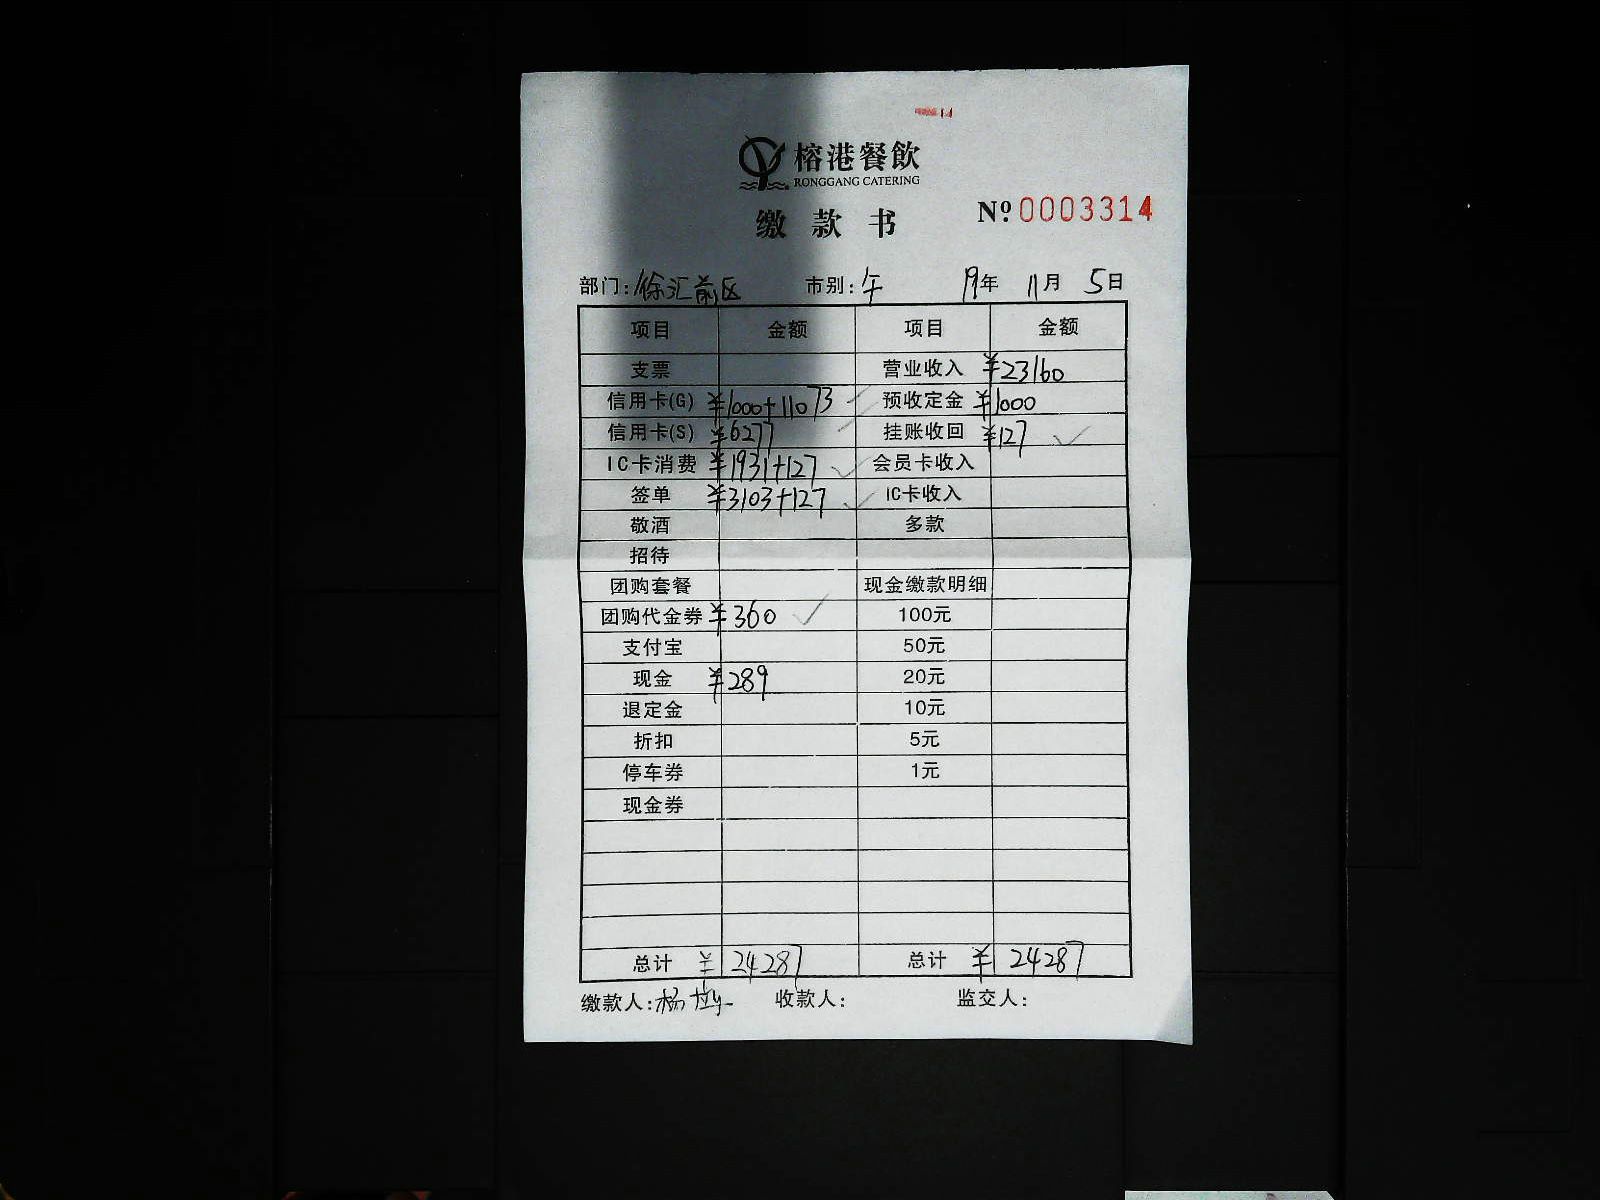 榕港餐飲
RONGGANG CATERING
缴款书
№ 0003314
部门: 徐汇前区 市别: 午 19年 11月 5日
项目 金额 项目 金额
支票 营业收入 ¥23160
信用卡(G) ¥1000+11073 预收定金 ¥1000
信用卡(S) ¥6277 挂账收回 ¥127
IC卡消费 ¥1931+127 会员卡收入
签单 ¥3103+127 IC卡收入
敬酒 多款
招待
团购套餐 现金缴款明细
团购代金券 ¥360 100元
支付宝 50元
现金 ¥289 20元
退定金 10元
折扣 5元
停车券 1元
现金券
总计 ¥24287 总计 ¥24287
缴款人: 杨 收款人: 监交人: